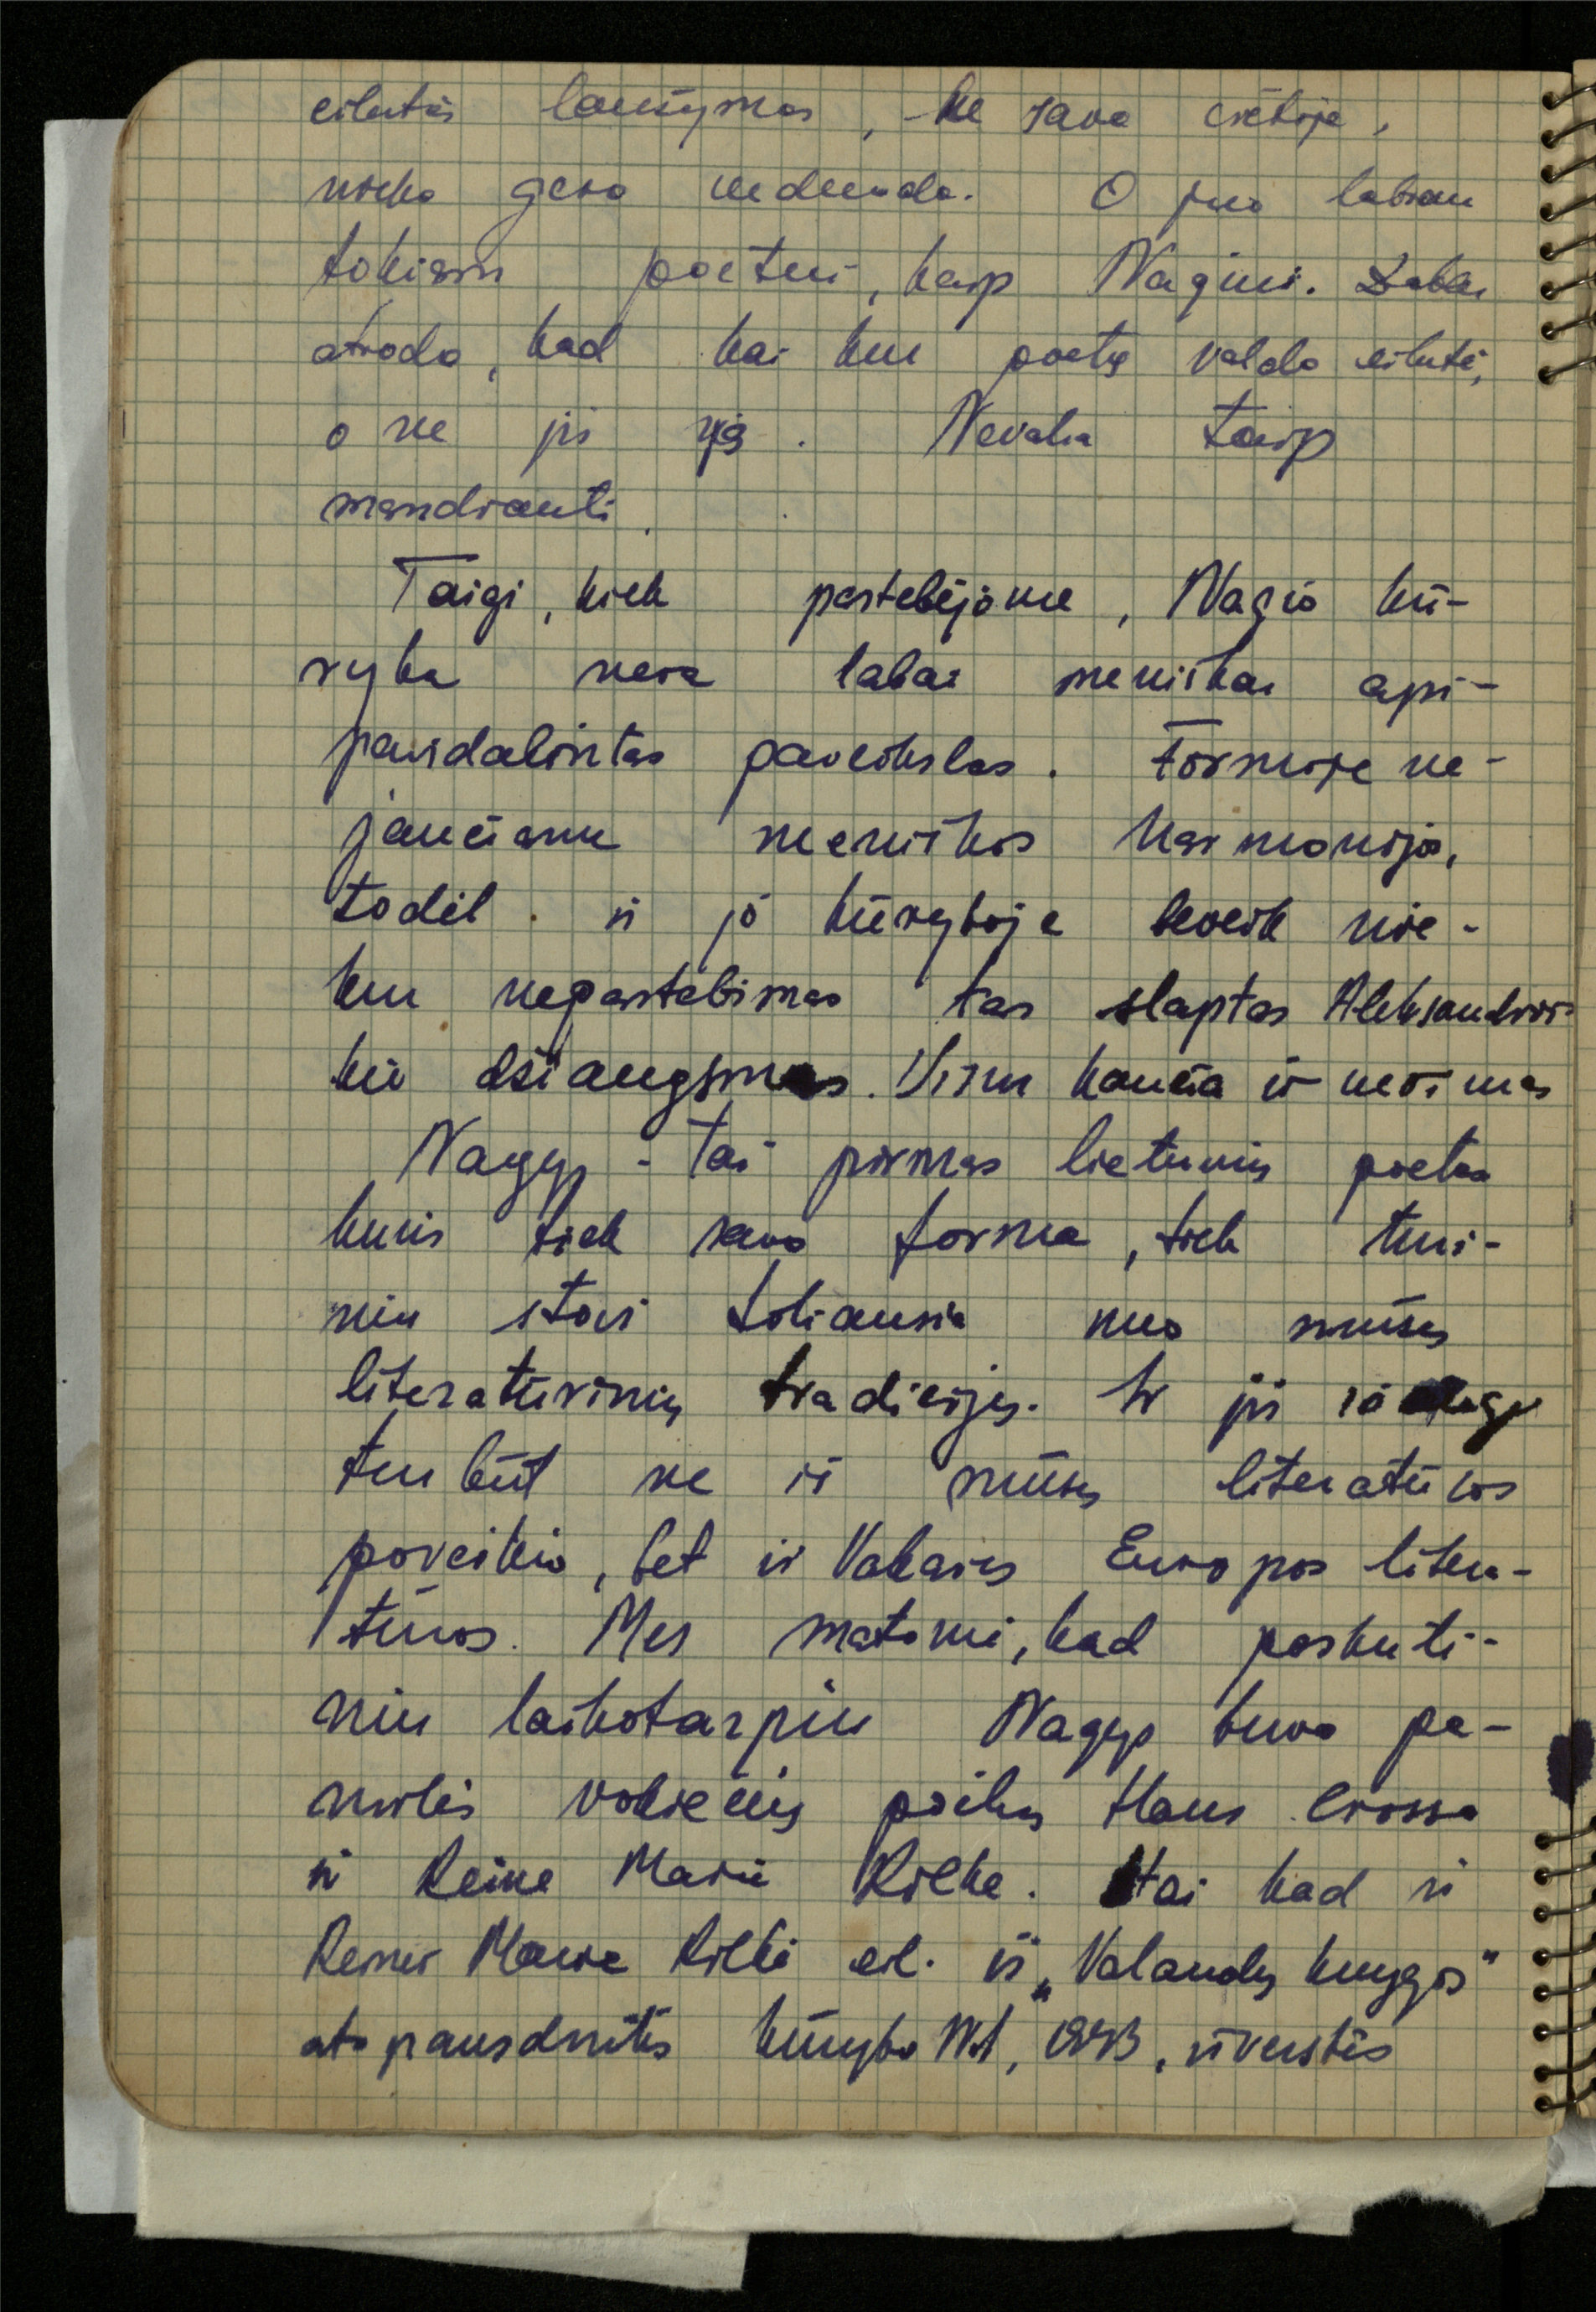 eilutės laužymas, ne savo vietoje,
nieko gero neduoda. O juo labiau
tokiam poetui, kaip Nagiui. Dabar
atrodo, kad kai kur poetą valdo eilutė,
o ne jis ją. Nevalia taip
mandrauti.
Taigi, kiek pastebėjome, Nagio kū-
ryba nėra labai meniškai api-
pavidalintas paveikslas. Formoje ne-
jaučiame meniškos harmonijos,
todėl ir jo kūryboje beveik nie-
kur nepastebimas tas slaptas Aleksandriš-
kis džiaugsmas. Visur kančia ir nerimas
Nagys - tai pirmas lietuvių poetas
kuris tiek savo forma, tiek turi-
niu stovi toliausia nuo mūsų
literatūrinių tradicijų. Ir jis išaugo
turbūt ne iš mūsų literatūros
poveikio, bet iš Vakarų Europos litera-
tūros. Mes matome, kad paskuti-
niu laikotarpiu Nagys buvo pa-
milęs vokiečių poetus Hans Carossa
ir Reine Marie Rilke. Štai kad ir
Reiner Marie Rilkė eil. iš „Valandų knygos"
atspausdintas Kūryba Nr 1, 1943, išverstas